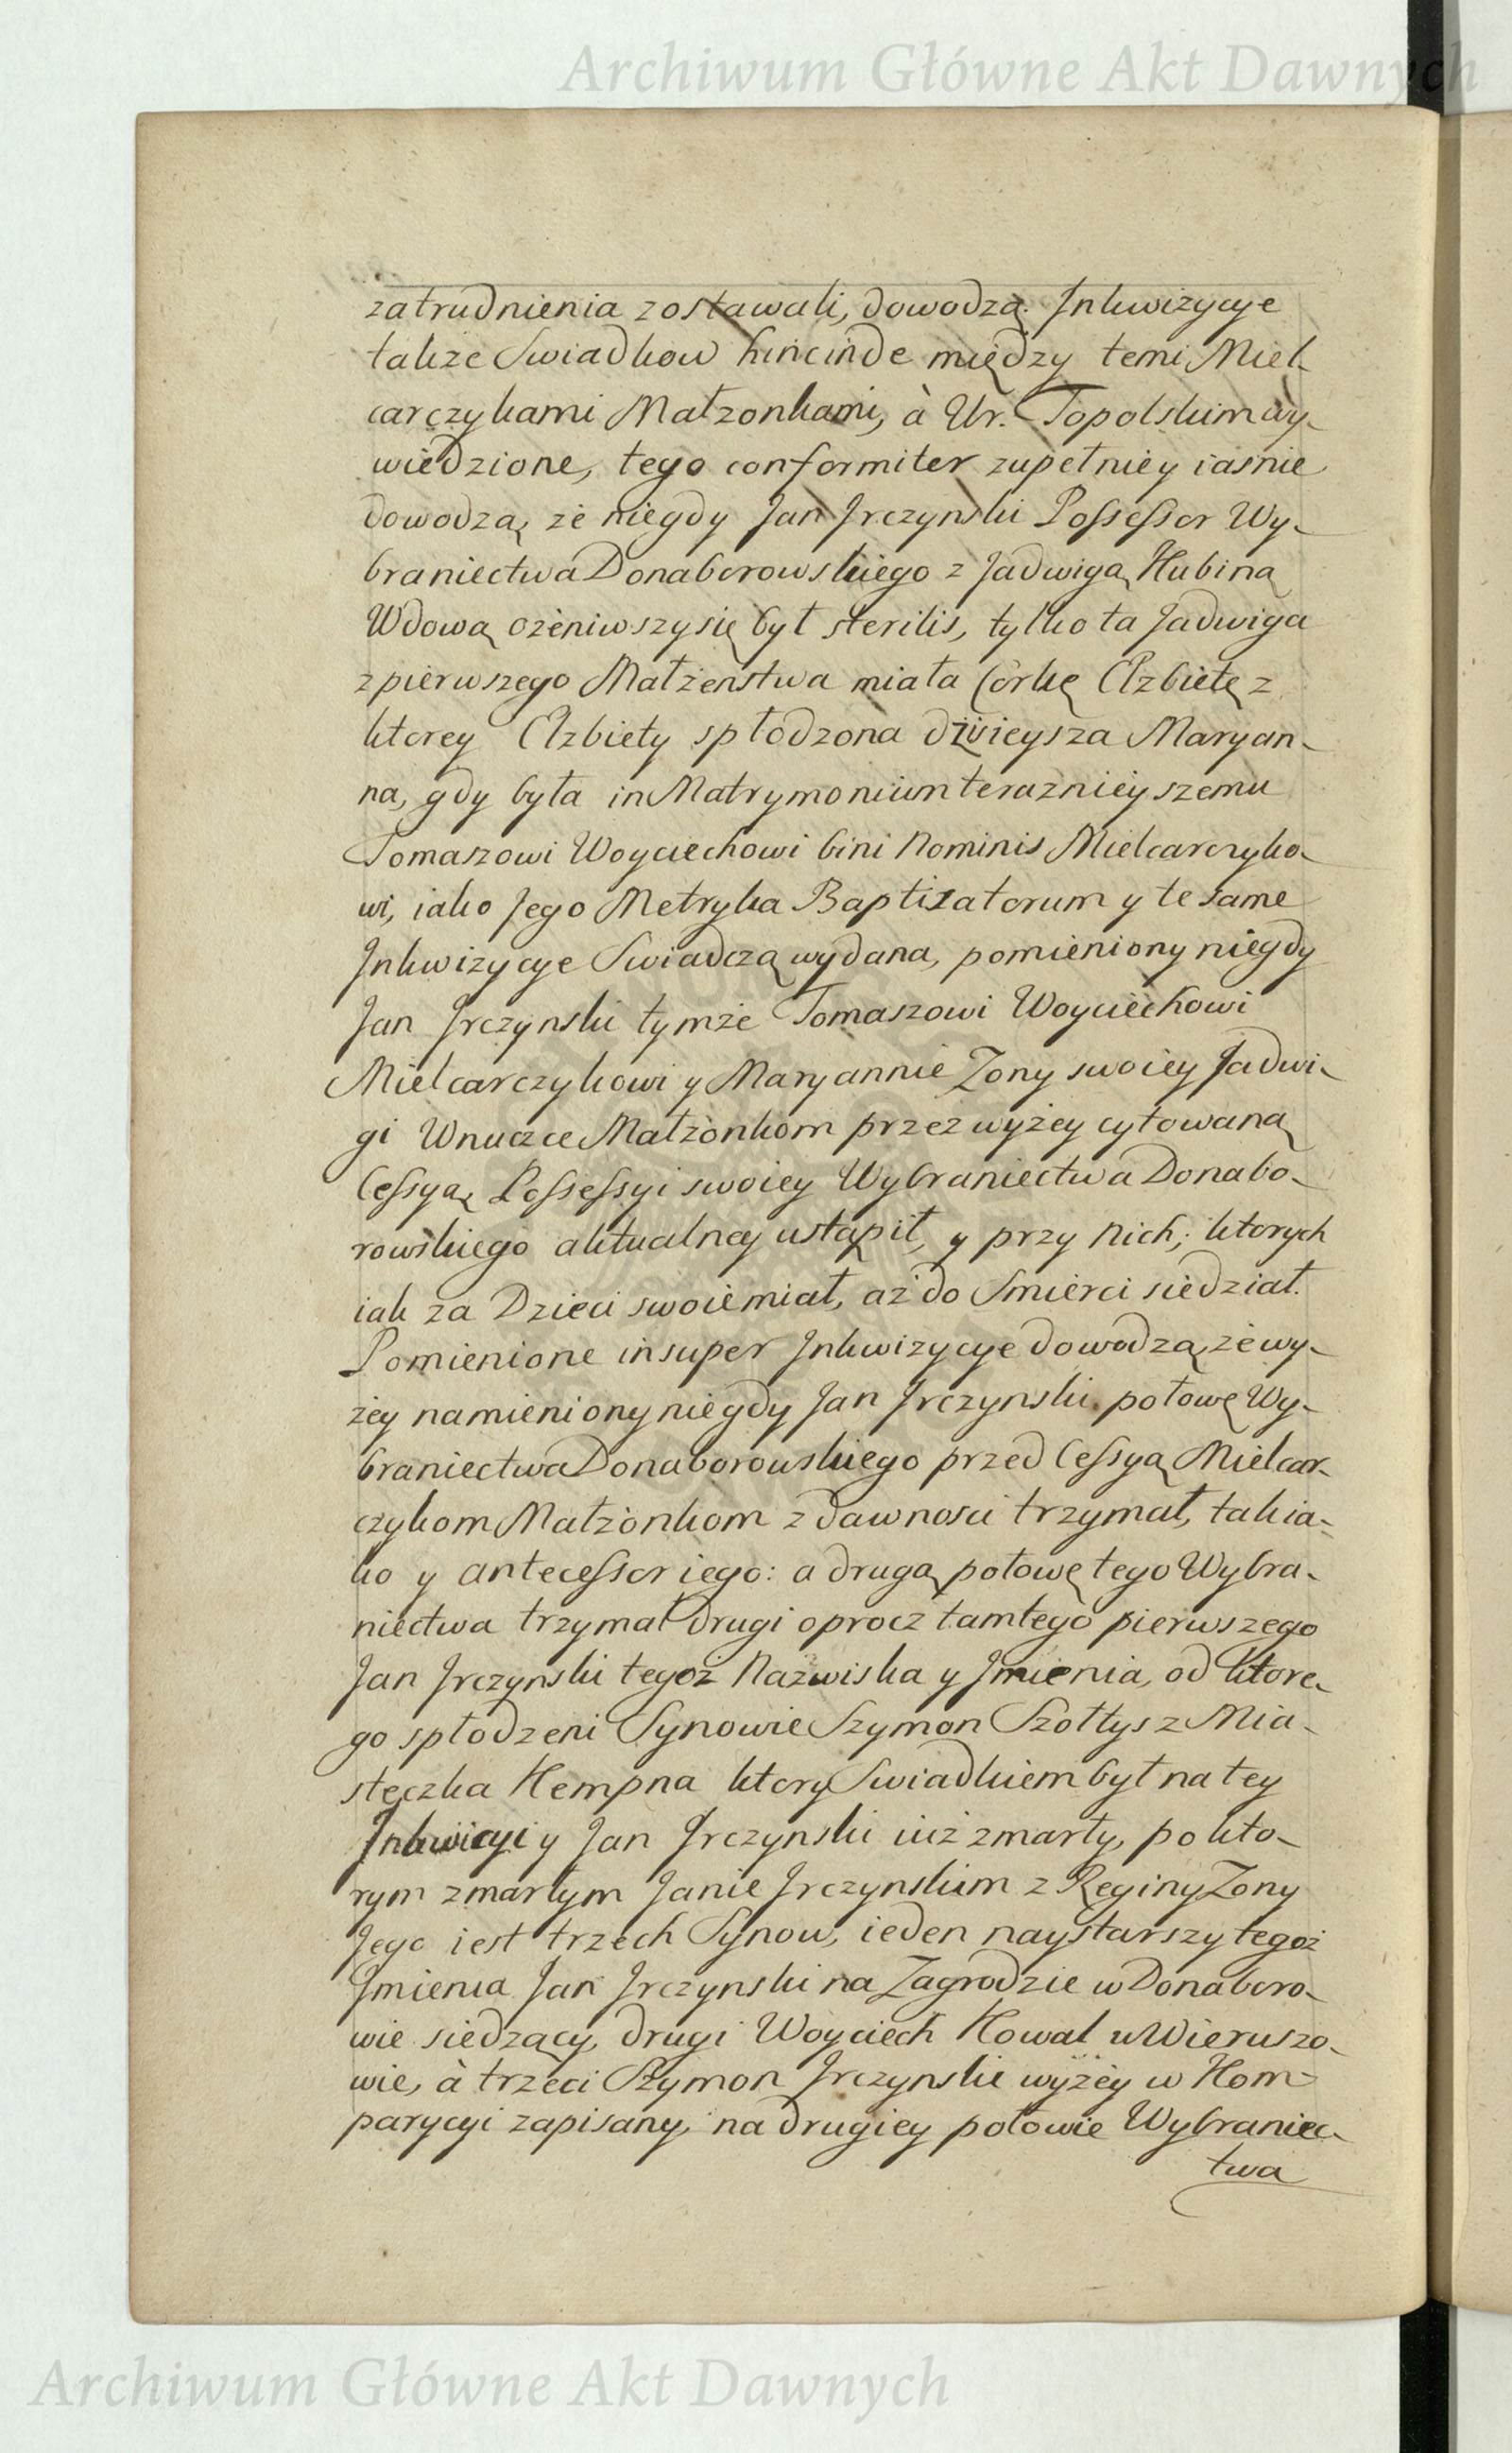 Archiwum Główne Akt Dawnych
zatrudnienia zostawali, dowodzą. Inkwizycye
także Swiadkow hincinde między temi Miel-
carczykami Małzonkami, à Ur. Topolskim wy-
wiedzione, tego conformiter zupełniey iasnie
dowodzą, że niegdy Jan Jrczynski Possessor Wy-
braniectwa Donaborowskiego z Jadwigą Kubiną
Wdową ożeniwszy się był sterilis, tylko ta Jadwiga
z pierwszego Małżenstwa miała Corkę Elzbietę z
ktorey Elzbiety spłodzona dzisieysza Maryan-
na, gdy była in Matrymonium terazniey szemu
Tomaszowi Woyciechowi bini Nominis Mielcarczyko-
wi, iako Jego Metryka Baptizatorum y te same
Inkwizycye Swiadczą wydana, pomieniony niegdy
Jan Jrczynski tymże Tomaszowi Woyciechowi
Mielcarczykowi y Maryannie Zony swoiey Jadwi-
gi Wnuczce Małżonkom przez wyżey cytowaną
Cessyą, Possessyi swoiey Wybraniectwa Donabo-
rowskiego aktualney ustąpił, y przy Nich, ktorych
iak za Dzieci swoie miał, aż do Smierci siedział.
Pomienione insuper Inkwizycye dowodzą, że wy-
żey namieniony niegdy Jan Jrczynski połowę Wy-
braniectwa Donaborowskiego przed Cessyą Mielcar-
czykom Małżonkom z dawnosci trzymał, tak ia-
ko y antecessor iego: a drugą połowę tego Wybra-
niectwa trzymał drugi oprocz tamtego pierwszego
Jan Jrczynski tegoż Nazwiska y Jmienia, od ktore-
go spłodzeni Synowie Szymon Szołtys z Mia-
steczka Kempna ktory Swiadkiem był na tey
Inkwicyi y Jan Jrczynski iuż zmarły, po kto-
rym zmarłym Janie Jrczynskim z Reginy Zony
Jego iest trzech Synow, ieden naystarszy tegoż
Jmienia Jan Jrczynski na Zagrodzie w Donaboro-
wie siedzący, drugi Woyciech Kowal w Wieruszo-
wie, à trzeci Szymon Jrczynski wyżey w Kom-
parycyi zapisany, na drugiey połowie Wybraniec-
twa
Archiwum Główne Akt Dawnych